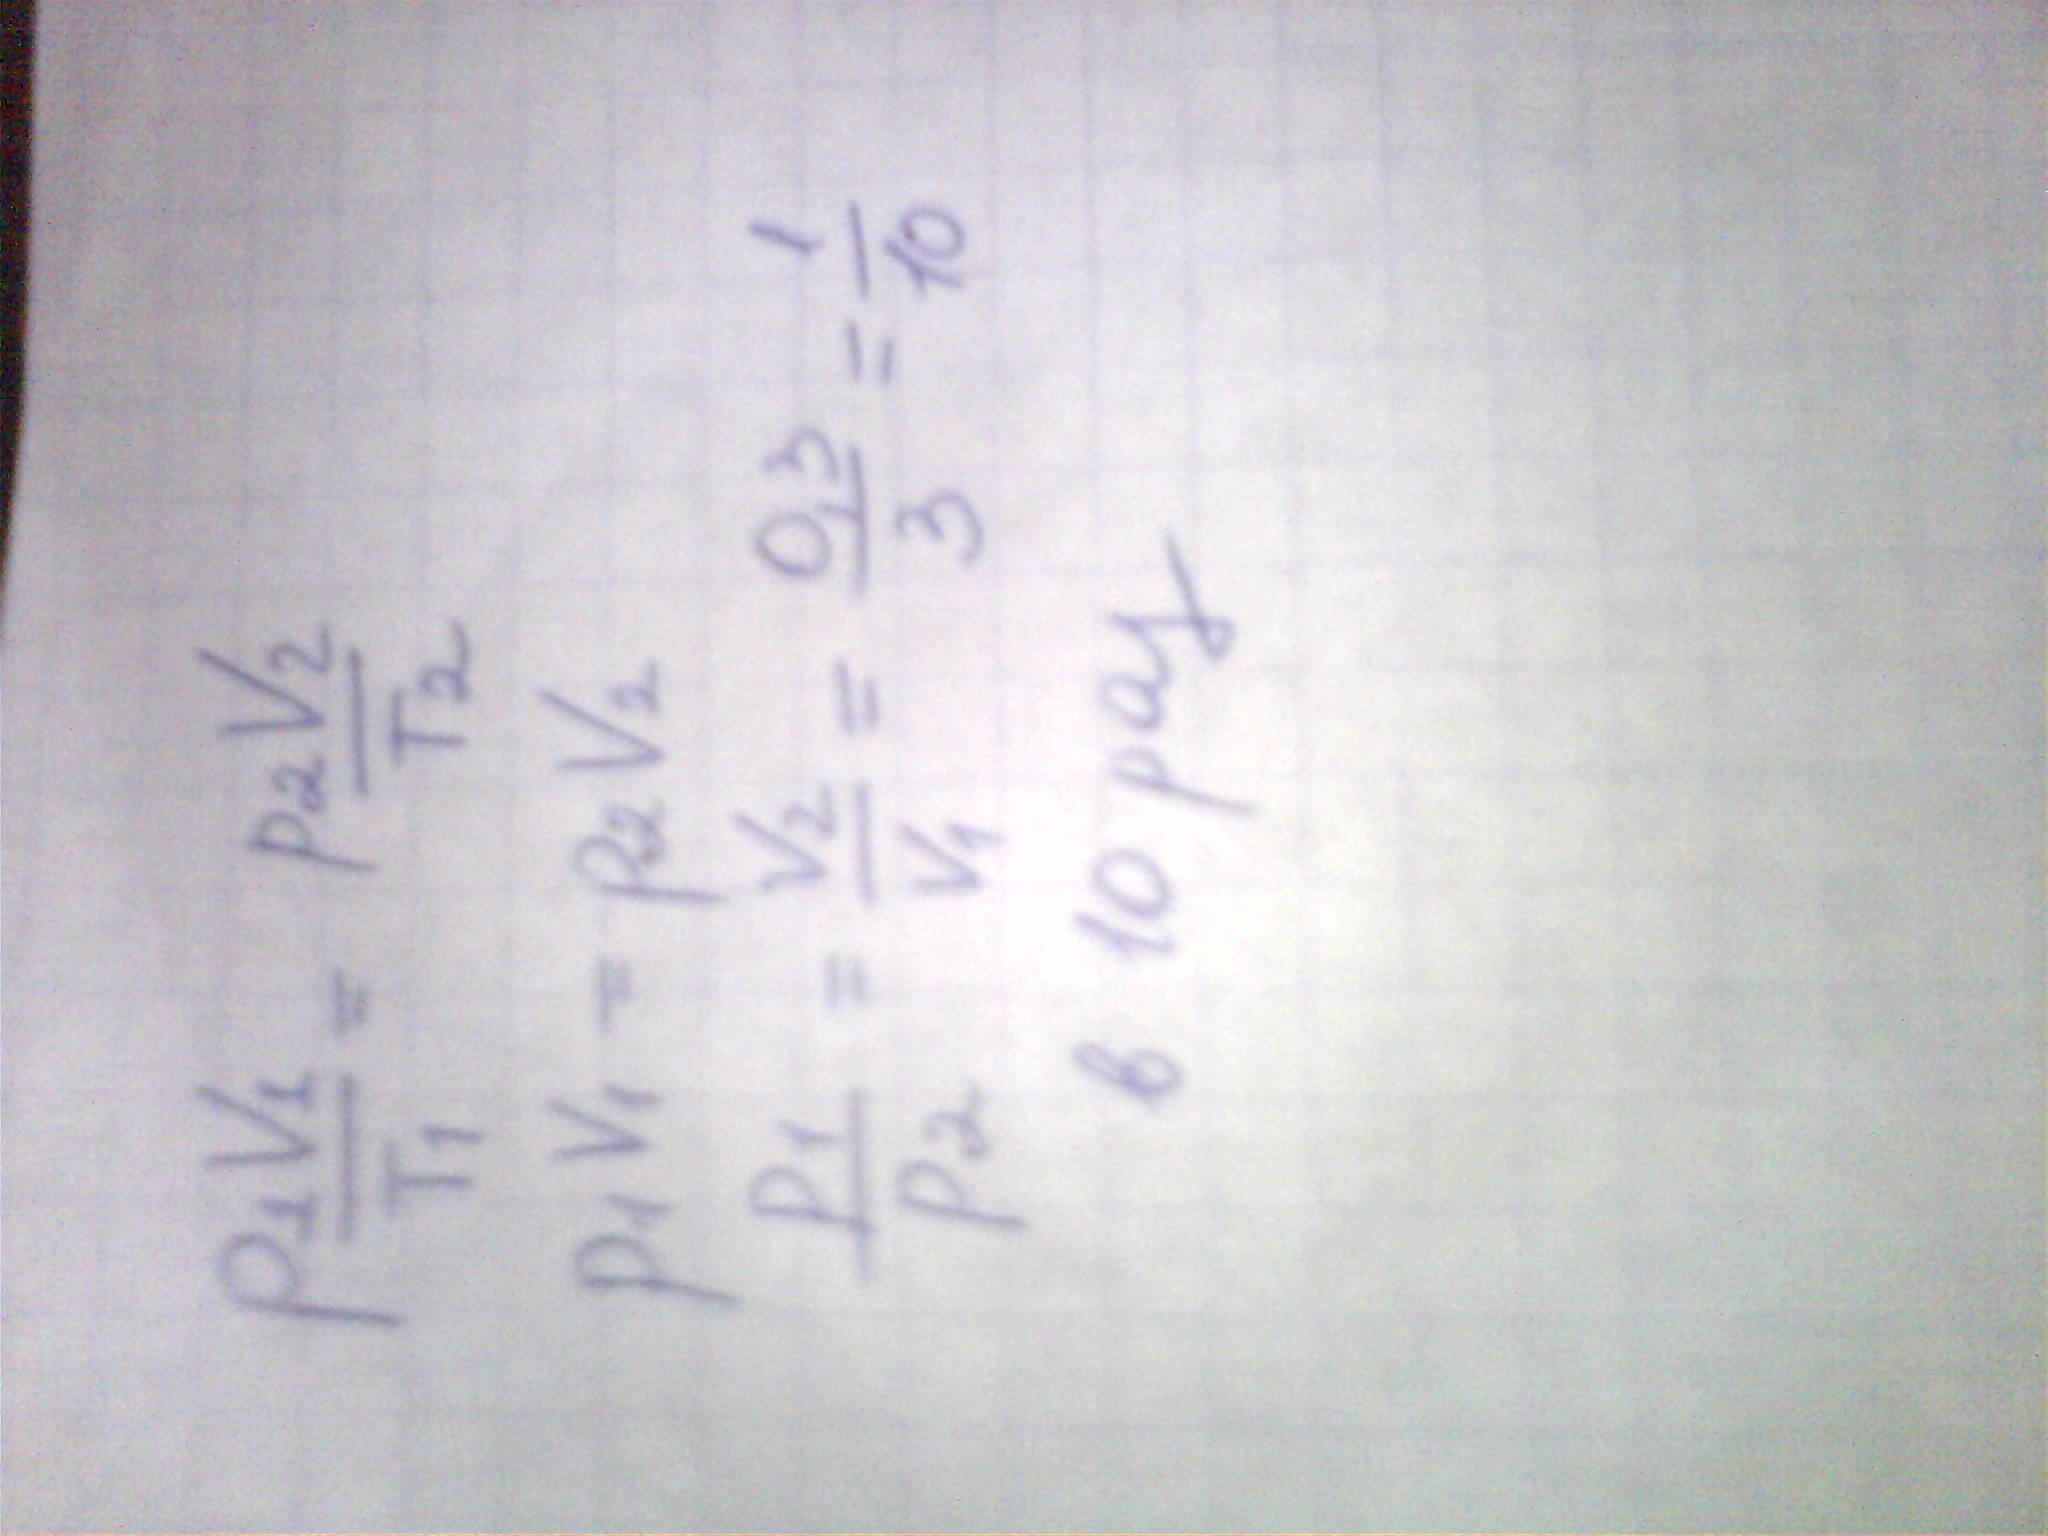 p₁V₁/T₁ = p₂V₂/T₂
p₁V₁ = p₂V₂
p₁/p₂ = V₂/V₁ = 0,3/3 = 1/10
в 10 раз